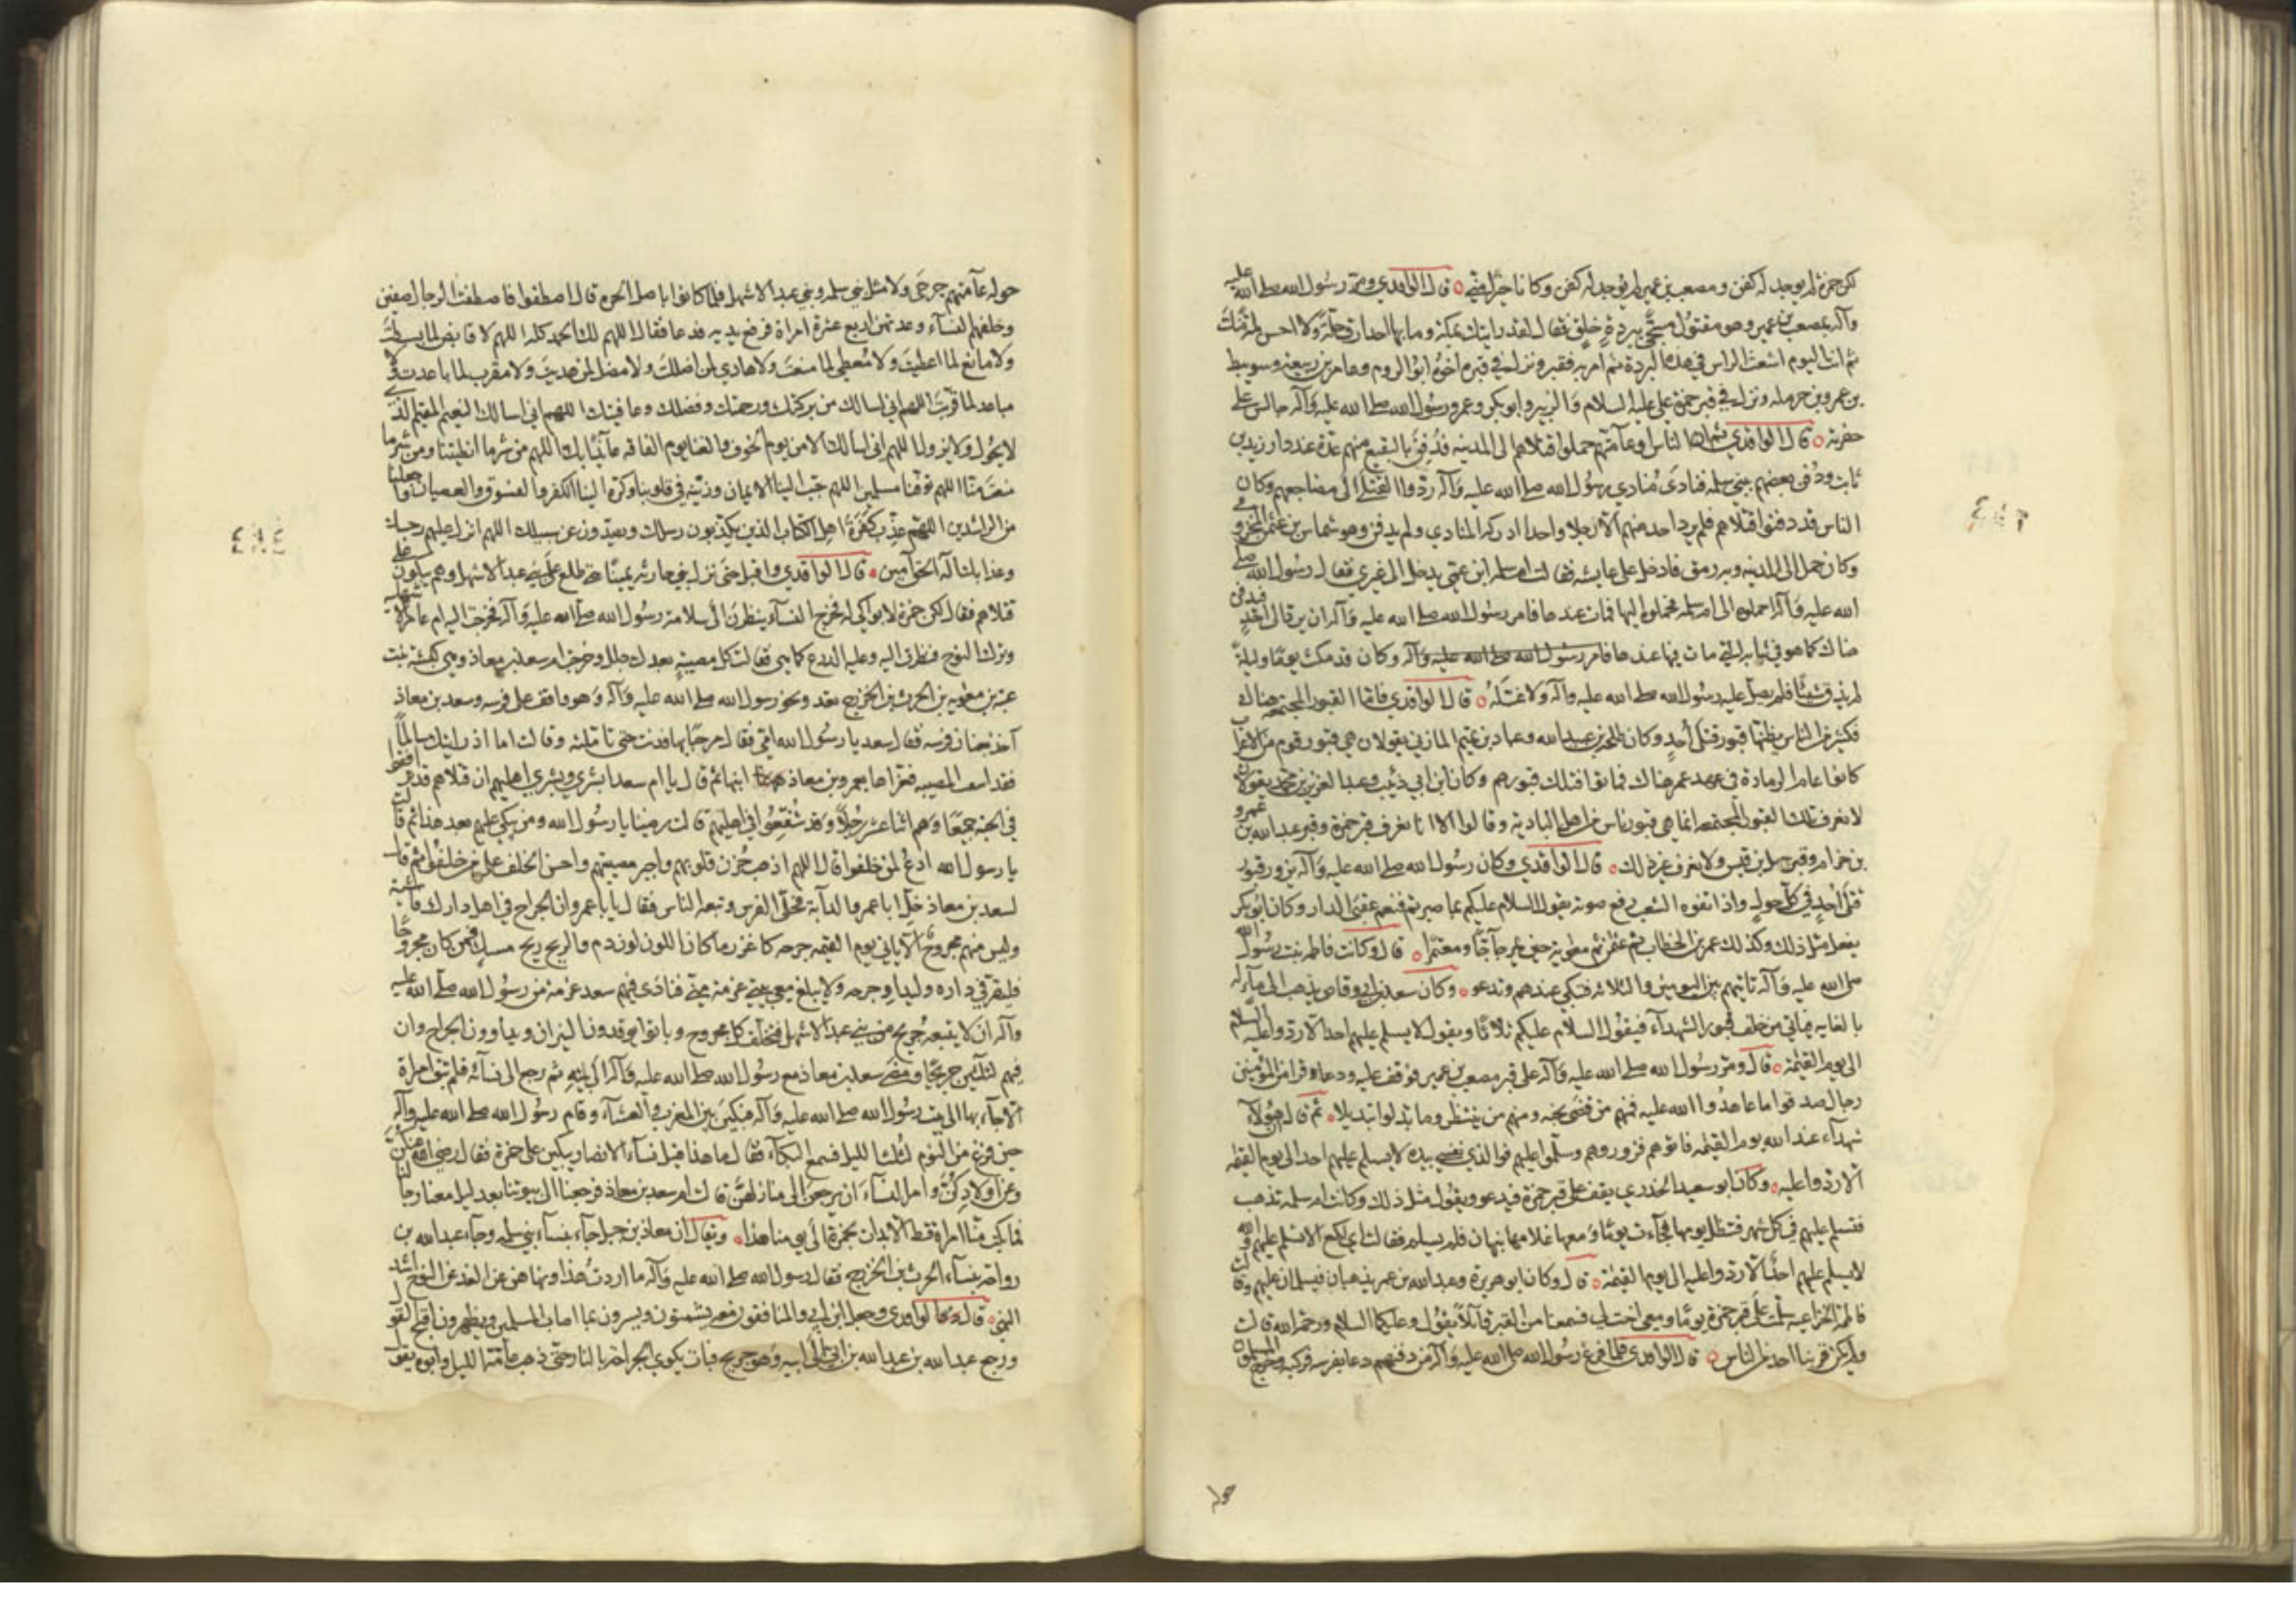 لكن حمزة لم يوجد له كفن ومصعب بن عمير لم يوجد له كفن وكانا خيرا مني ٥ قال الواقدي ومر رسول الله صلى الله عليه
وآله بمصعب بن عمير وهو مقتول مسجى ببردة خلق فقال لقد رايتك بمكة وما بها احد ارق حلة ولا احسن لمة منك
ثم انت اليوم اشعث الراس في هذه البردة ثم امر به فقبر ونزل في قبره اخوه ابو الروم وعامر بن ربيعة وسويبط
بن عمرو بن حرملة ونزل في قبر حمزة علي عليه السلام والزبير وابو بكر وعمر ورسول الله صلى الله عليه وآله جالس على
حفرته ٥ قال الواقدي ثم ان الناس او عامتهم حملوا قتلاهم الى المدينة فدفن بالبقيع منهم عدة عند دار زيد بن
ثابت ودفن بعضهم ببني سلمة فنادى منادي رسول الله صلى الله عليه وآله ردوا القتلى الى مضاجعهم وكان
الناس قد دفنوا قتلاهم فلم يرد احد منهم الا رجلا واحدا ادركه المنادي ولم يدفن وهو شماس بن عثمان المخزومي
وكان حمل الى المدينة وبه رمق فادخل على عايشة فقالت ام سلمة ابن عمي يدخل الى غيري فقال رسول الله صلى
الله عليه وآله احملوه الى ام سلمة فحملوه اليها فمات عندها فامر رسول الله صلى الله عليه وآله ان يرد الى احد فيدفن
هناك كما هو في ثيابه التي مات فيها عندها فامر رسول الله صلى الله عليه وآله وكان قد مكث يوما وليلة
لم يذق شيئا فلم يصل عليه رسول الله صلى الله عليه وآله ولا غسله ٥ قال الواقدي فاما القبور المجتمعة هناك
فكثير من الناس يظنها قبور قتلى أحد وكان طلحة بن عبيد الله وعباد بن تميم المازني يقولان هي قبور قوم من الاعراب
كانوا عام الرمادة في عهد عمر هناك فماتوا فتلك قبورهم وكان ابن ابي ذئب وعبد العزيز بن محمد يقولان
لا نعرف تلك القبور المجتمعة انما هي قبور ناس من اهل البادية وقالوا الا انا نعرف قبر حمزة وقبر عبد الله بن عمرو
بن حزام وقبر سهل بن قيس ولا نعرف غير ذلك ٥ قال الواقدي وكان رسول الله صلى الله عليه وآله يزور قبور
قتلى أحد في كل حول واذا تفوه الشعب رفع صوته يقول السلام عليكم بما صبرتم فنعم عقبى الدار وكان ابو بكر
يفعل مثل ذلك وكذلك عمر بن الخطاب ثم عثمن ثم معوية حين يمر حاجا ومعتمرا ٥ قال وكانت فاطمة بنت رسول الله
صلى الله عليه وآله تاتيهم بين اليومين والثلاثة فتبكي عندهم وتدعو ٥ وكان سعد بن ابي وقاص يذهب الى ماله
بالغابة فياتي من خلف قبور الشهداء فيقول السلام عليكم ثلاثا ويقول لا يسلم عليهم احد الا ردوا عليه السلام
الى يوم القيمة ٥ قال ومر رسول الله صلى الله عليه وآله على قبر مصعب بن عمير فوقف عليه ودعا وقرا من المؤمنين
رجال صدقوا ما عاهدوا الله عليه فمنهم من قضى نحبه ومنهم من ينتظر وما بدلوا تبديلا ٥ ثم قال ان هؤلاء
شهداء عند الله يوم القيمة فاتوهم فزوروهم وسلموا عليهم فوالذي نفسي بيده لا يسلم عليهم احد الى يوم القيمة
الا ردوا عليه ٥ وكان ابو سعيد الخدري يقف على قبر حمزة فيدعو ويقول مثل ذلك وكانت ام سلمة تذهب
فتسلم عليهم في كل شهر فتظل يومها فجاءت يوما ومعها غلامها نبهان فلم يسلم فقالت اي لكع الا تسلم عليهم والله
لا يسلم عليهم احد الا ردوا عليه الى يوم القيمة ٥ قال وكان ابو هريرة وعبد الله بن عمر يذهبان فيسلمان عليهم وقالت
فاطمة الخزاعية سلمت على قبر حمزة يوما ومعي اخت لي فسمعنا من القبر قائلا يقول وعليكما السلام ورحمة الله قالت
ولم يكن قربنا احد من الناس ٥ قال الواقدي فلما فرغ رسول الله صلى الله عليه وآله من دفنهم دعا بفرسه فركبه وخرج المسلمون
حوله
حوله عامتهم جرحى ولا مثل بني سلمة وبني عبد الاشهل فلما كانوا باصل الحرة قال اصطفوا فاصطفت الرجال صفين
وخلفهم النساء وعدتهن اربع عشرة امراة فرفع يديه فدعا فقال اللهم لك الحمد كله اللهم لا قابض لما بسطت
ولا مانع لما اعطيت ولا معطي لما منعت ولا هادي لمن اضللت ولا مضل لمن هديت ولا مقرب لما باعدت ولا
مباعد لما قربت اللهم اني اسالك من بركتك ورحمتك وفضلك وعافيتك اللهم اني اسالك النعيم المقيم الذي
لا يحول ولا يزول اللهم اني اسالك الامن يوم الخوف والغنا يوم الفاقة عائذا بك اللهم من شر ما انطيتنا ومن شر ما
منعت منا اللهم توفنا مسلمين اللهم حبب الينا الايمان وزينه في قلوبنا وكره الينا الكفر والفسوق والعصيان واجعلنا
من الراشدين اللهم عذب كفرة اهل الكتاب الذين يكذبون رسلك ويصدون عن سبيلك اللهم انزل عليهم رجسك
وعذابك اله الحق آمين ٥ قال الواقدي واقبل حتى نزل ببني حارثة يمينا حتى طلع على بني عبد الاشهل وهم يبكون على
قتلاهم فقال لكن حمزة لا بواكي له فخرج النساء ينظرن الى سلامة رسول الله صلى الله عليه وآله فخرجت اليه ام عامر الاشهلية
وتركت النوح فنظرت اليه وعليه الدرع كما هي فقالت كل مصيبة بعدك جلل وخرجت ام سعد بن معاذ وهي كبشة بنت
عتبة بن معوية بن الحرث بن الخزرج تعدو نحو رسول الله صلى الله عليه وآله وهو واقف على فرسه وسعد بن معاذ
آخذ بعنان فرسه فقال سعد يا رسول الله امي فقال مرحبا بها فدنت حتى تاملته وقالت اما اذ رايتك سالما
فقد اشفت المصيبة فعزاها بعمرو بن معاذ ابنها ثم قال يا ام سعد ابشري وبشري اهليهم ان قتلاهم قد ترافقوا
في الجنة جميعا وهم اثنا عشر رجلا وقد شفعوا في اهليهم قالت رضينا يا رسول الله ومن يبكي عليهم بعد هذا ثم قالت
يا رسول الله ادع لمن خلفوا قال اللهم اذهب حزن قلوبهم واجر مصيبتهم واحسن الخلف على من خلفوا ثم قال
لسعد بن معاذ خل ابا عمرو الدابة فخلى الفرس وتبعه الناس فقال يا با عمرو ان الجراح في اهل دارك فاشية
وليس منهم مجروح الا ياتي يوم القيمة جرحه كاغزر ما كان اللون لون دم والريح ريح مسك فمن كان مجروحا
فليقر في داره وليداو جرحه ولا يبلغ معي بيتي عزمة مني فنادى فيهم سعد عزمة من رسول الله صلى الله عليه
وآله ان لا يتبعه جريح من بني عبد الاشهل فتخلف كل مجروح وباتوا يوقدون النيران ويداوون الجراح وان
فيهم لثلثين جريحا ومضى سعد بن معاذ مع رسول الله صلى الله عليه وآله الى بيته ثم رجع الى نسائه فلم تبق امراة
الا جاء بها الى بيت رسول الله صلى الله عليه وآله فبكين بين المغرب والعشاء وقام رسول الله صلى الله عليه وآله
حين فرغ من النوم لثلث الليل فسمع البكاء فقال ما هذا قيل نساء الانصار يبكين على حمزة فقال رضي الله عنكن
وعن اولادكن وامر النساء ان يرجعن الى منازلهن قالت ام سعد بن معاذ فرجعنا الى بيوتنا بعد ليل معنا رجالنا
فما بكت منا امراة قط الا بدات بحمزة الى يومنا هذا ٥ ويقال ان معاذ بن جبل جاء بنساء بني سلمة وجاء عبد الله بن
رواحة بنساء الحرث بن الخزرج فقال رسول الله صلى الله عليه وآله ما اردت هذا ونهاهن عن الغد عن النوح اشد
النهي ٥ قال الواقدي وجعل ابن ابي والمنافقون معه يشمتون ويسرون بما اصاب المسلمين ويظهرون اقبح القول
ورجع عبد الله بن عبد الله بن ابي الى ابيه وهو جريح فبات يكوي الجراحة بالنار حتى ذهب عامة الليل وابوه يقول